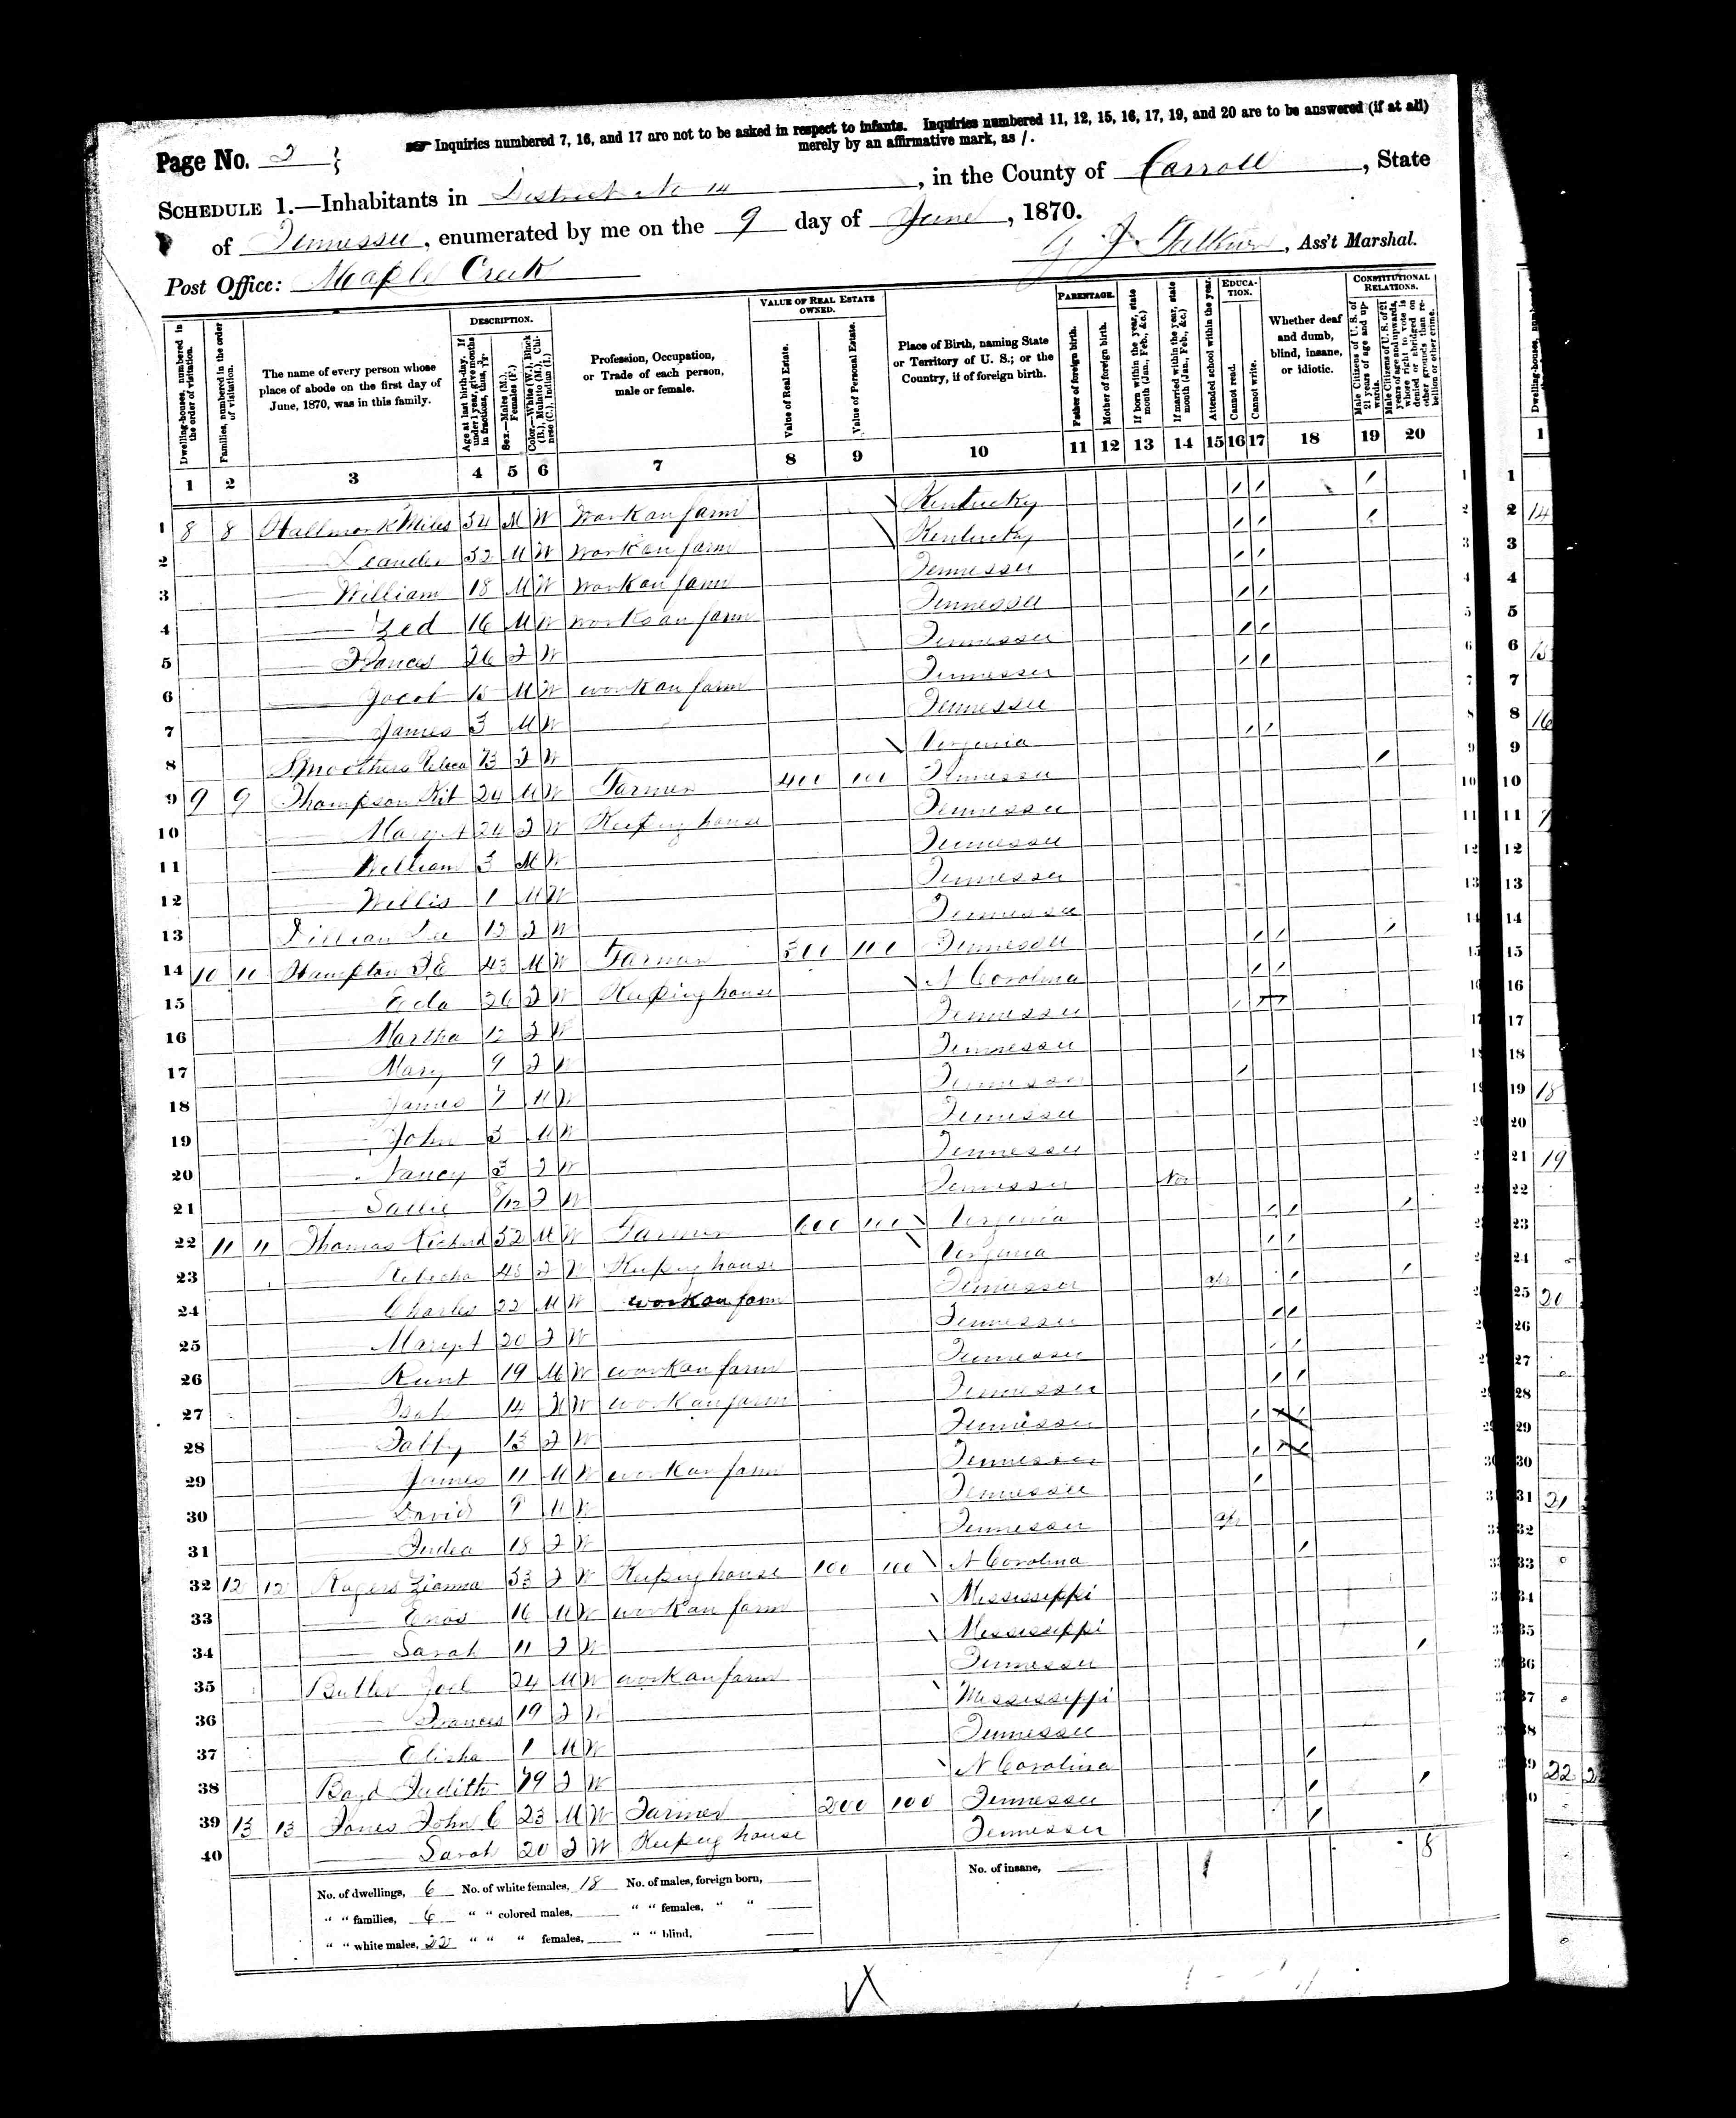 Inquiries numbered 7, 16, and 17 are not to be asked in respect to infants. Inquiries numbered 11, 12, 15, 16, 17, 19, and 20 are to be answered (if at all)
merely by an affirmative mark, as /.
Page No. 2
SCHEDULE 1.—Inhabitants in District No 14, in the County of Carroll, State
of Tennessee, enumerated by me on the 9 day of June, 1870.
Post Office: Maple Creek
G J, Ass't Marshal.
Dwelling-houses, numbered in the order of visitation.
Families, numbered in the order of visitation.
The name of every person whose place of abode on the first day of June, 1870, was in this family.
DESCRIPTION.
Age at last birth-day. If under 1 year, give months in fractions, thus, 3/12.
Sex.—Males (M.), Females (F.)
Color.—White (W.), Black (B.), Mulatto (M.), Chinese (C.), Indian (I.)
Profession, Occupation, or Trade of each person, male or female.
VALUE OF REAL ESTATE OWNED.
Value of Real Estate.
Value of Personal Estate.
Place of Birth, naming State or Territory of U. S.; or the Country, if of foreign birth.
PARENTAGE.
Father of foreign birth.
Mother of foreign birth.
If born within the year, state month (Jan., Feb., &c.)
If married within the year, state month (Jan., Feb., &c.)
Attended school within the year.
EDUCATION.
Cannot read.
Cannot write.
Whether deaf and dumb, blind, insane, or idiotic.
CONSTITUTIONAL RELATIONS.
Male Citizens of U. S. of 21 years of age and upwards.
Male Citizens of U. S. of 21 years of age and upwards, whose right to vote is denied or abridged on other grounds than rebellion or other crime.
1 2 3 4 5 6 7 8 9 10 11 12 13 14 15 16 17 18 19 20
1 8 8 Hallmark Miles 34 M W Work on farm Kentucky / / /
2 Leander 32 M W Work on farm Kentucky / / /
3 William 18 M W Work on farm Tennessee / /
4 Zed 16 M W Works on farm Tennessee / /
5 Frances 26 F W Tennessee / /
6 Jacob 15 M W work on farm Tennessee / /
7 James 3 M W Tennessee
8 Smothers 73 F W Virginia / /
9 9 9 Thompson Kit 24 M W Farmer 400 100 Tennessee /
10 Margret 24 F W Keeping house Tennessee
11 William 3 M W Tennessee
12 Willis 1 M W Tennessee
13 Lee 12 F W Tennessee
14 10 10 Hampton 43 M W Farmer 300 100 Tennessee / / /
15 Eda 26 F W Keeping house N Carolina / /
16 Martha 12 F W Tennessee /
17 Mary 9 F W Tennessee
18 James 7 M W Tennessee /
19 John 5 M W Tennessee
20 Nancy 3 F W Tennessee
21 Sallie /12 F W Tennessee Nov
22 11 11 Thomas Richard 52 M W Farmer 600 100 Virginia / / /
23 Rebecha 45 F W Keeping house Virginia / /
24 Charles 22 M W work on farm Tennessee apr / /
25 Mary A 20 F W Tennessee / /
26 19 M W work on farm Tennessee / /
27 14 M W work on farm Tennessee / /
28 Tabby 13 F W Tennessee /
29 James 11 M W work on farm Tennessee /
30 David 9 M W Tennessee /
31 18 F W Tennessee apr
32 12 12 Rogers 53 F W Keeping house 100 100 N Carolina /
33 Enos 16 M W work on farm Mississippi
34 Sarah 11 F W Mississippi
35 Butler Joel 24 M W work on farm Tennessee /
36 Frances 19 F W Mississippi
37 Elisha 1 M W Tennessee
38 Boyd Judith 79 F W N Carolina /
39 13 13 Jones John C 23 M W Farmer 200 100 Tennessee / /
40 Sarah 20 F W Keeping house Tennessee /
No. of dwellings, 6 No. of white females, 18 No. of males, foreign born, No. of insane, 1 8
" " families, 6 " " colored males, " " females, " "
" " white males, 22 " " " females, " " blind,